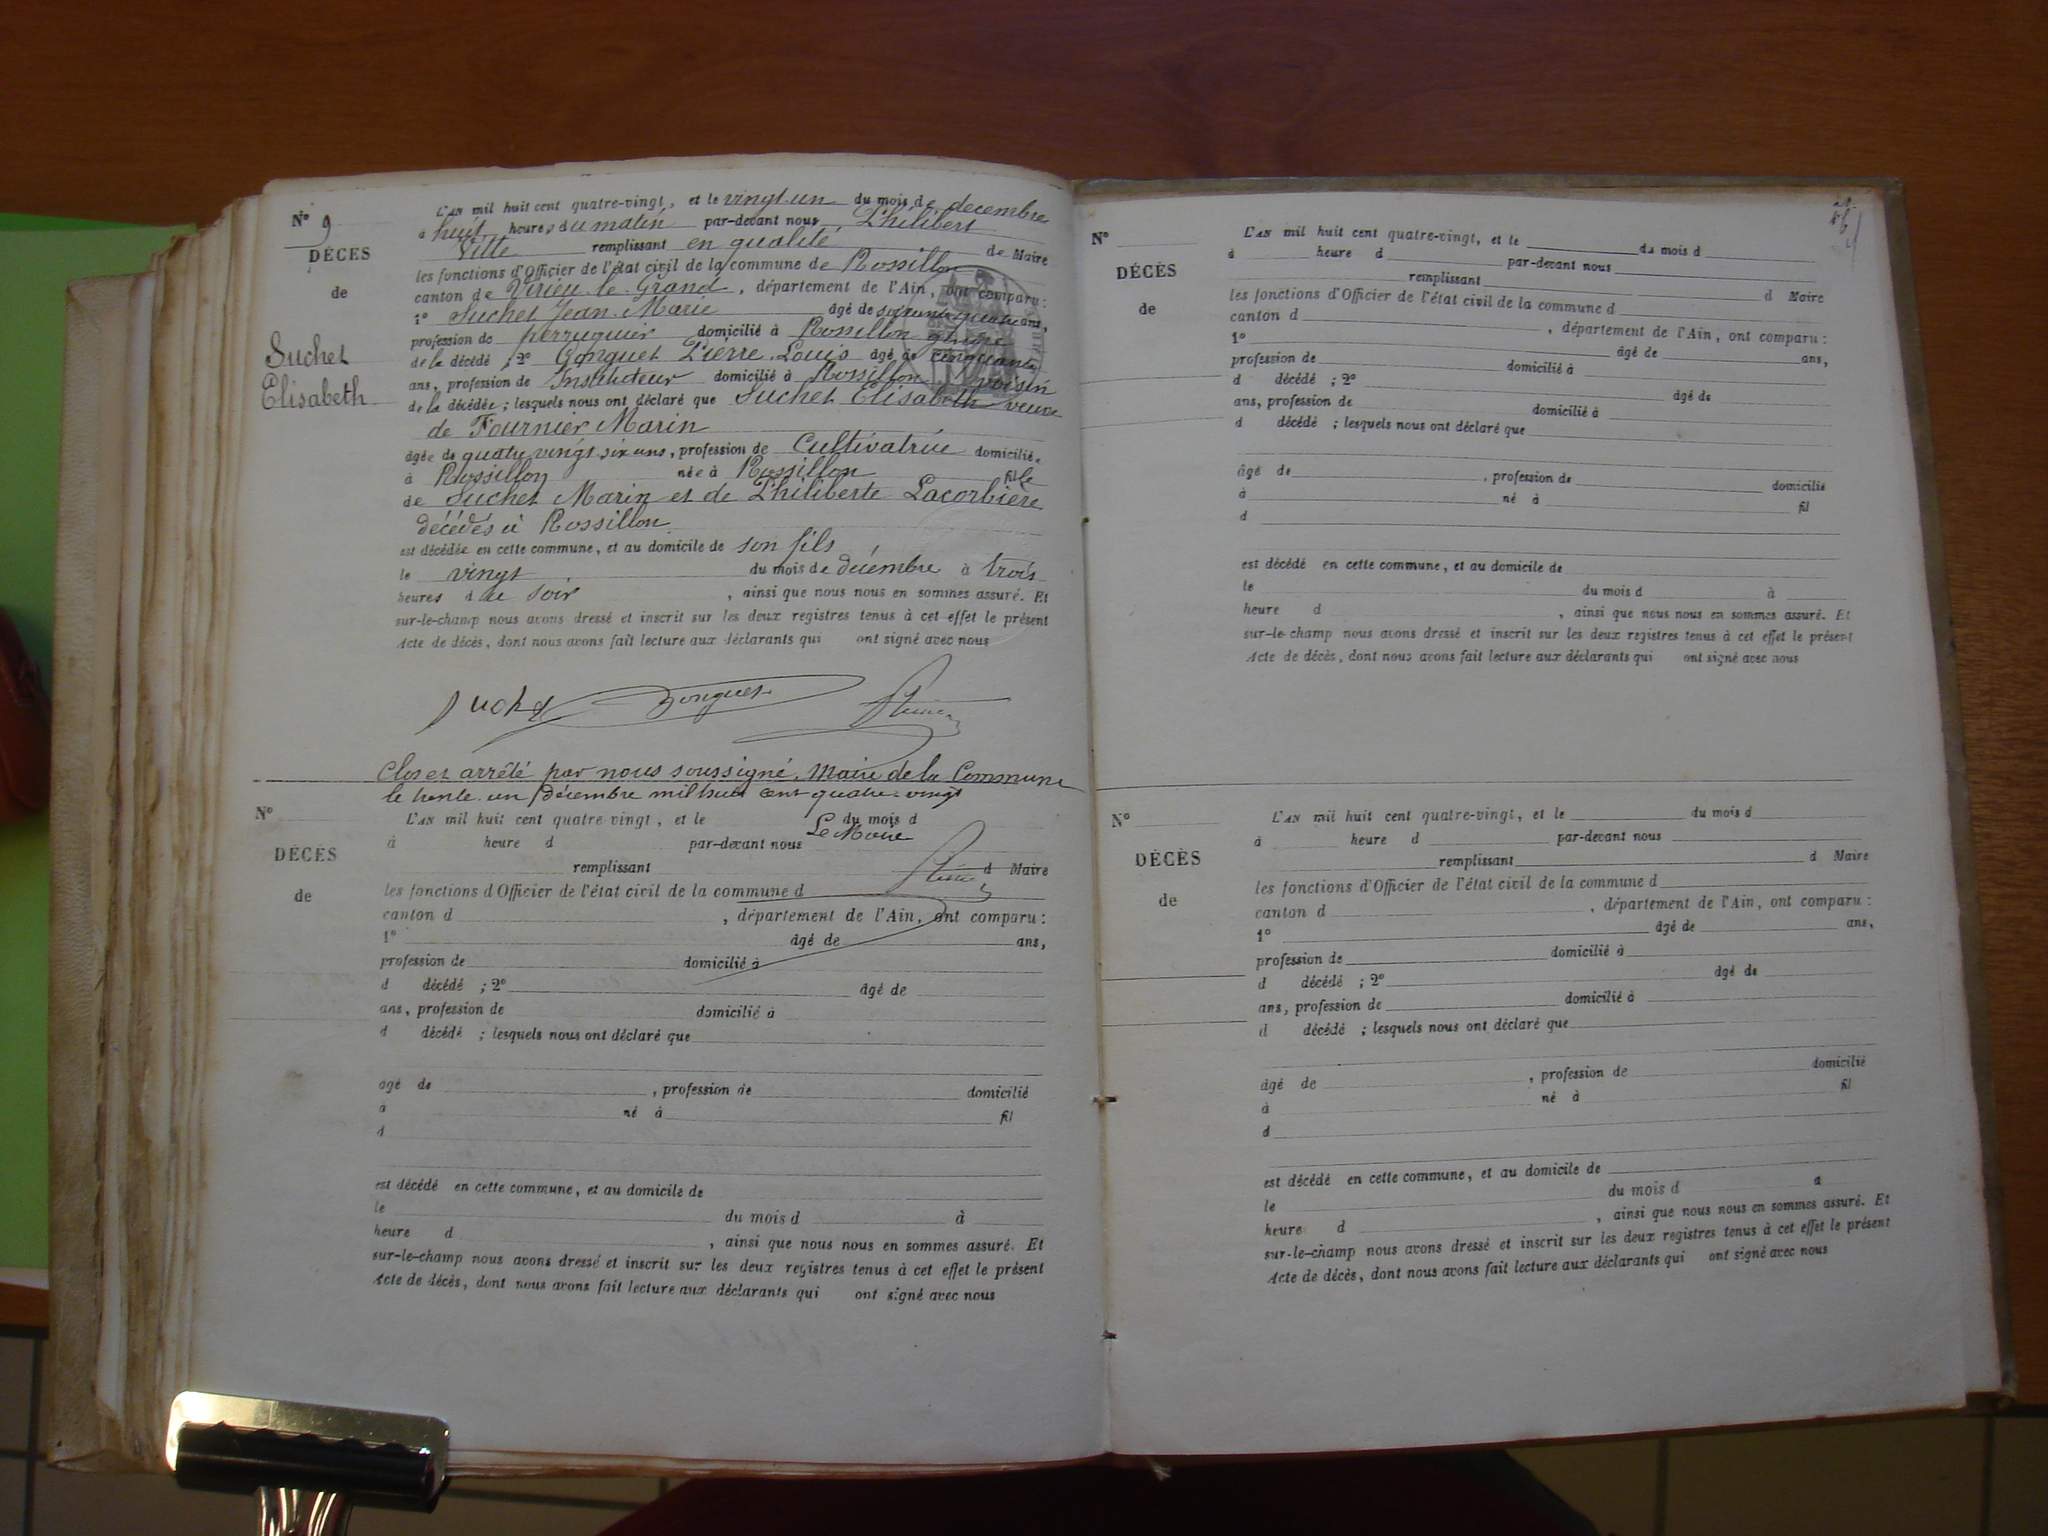 N° 9
DÉCÈS
de
Suchet
Elisabeth
L'AN mil huit cent quatre-vingt, et le vingt-un du mois de décembre
à huit heures du matin par-devant nous Philibert
remplissant en qualité de Maire
les fonctions d'Officier de l'état civil de la commune de Rossillon
canton de Virieu-le-Grand, département de l'Ain, ont comparu :
1° Suchet Jean-Marie âgé de soixante quatre ans,
profession de perruquier domicilié à Rossillon
de la décédé ; 2° Gonguet Pierre Louis âgé de cinquante
ans, profession de Instituteur domicilié à Rossillon voisin
de la décédée ; lesquels nous ont déclaré que Suchet Elisabeth veuve
de Fournier Marin
âgée de quatre vingt six ans, profession de Cultivatrice domiciliée
à Rossillon née à Rossillon fille
de Suchet Marin et de Philiberte Lacorbière
décédés à Rossillon
est décédée en cette commune, et au domicile de son fils
le vingt du mois de décembre à trois
heures d du soir, ainsi que nous nous en sommes assuré. Et
sur-le-champ nous avons dressé et inscrit sur les deux registres tenus à cet effet le présent
Acte de décès, dont nous avons fait lecture aux déclarants qui ont signé avec nous
Suchet Gonguet
Clos et arrêté par nous soussigné, Maire de la Commune
le trente-un décembre mil huit cent quatre-vingt
Le Maire
N°
DÉCÈS
de
L'AN mil huit cent quatre-vingt, et le du mois d
à heure d par-devant nous
remplissant d Maire
les fonctions d'Officier de l'état civil de la commune d
canton d , département de l'Ain, ont comparu :
1° âgé de ans,
profession de domicilié à
d décédé ; 2° âgé de
ans, profession de domicilié à
d décédé ; lesquels nous ont déclaré que
âgé de , profession de domicilié
à né à fil
d
est décédé en cette commune, et au domicile de
le du mois d à
heure d , ainsi que nous nous en sommes assuré. Et
sur-le-champ nous avons dressé et inscrit sur les deux registres tenus à cet effet le présent
Acte de décès, dont nous avons fait lecture aux déclarants qui ont signé avec nous
N°
DÉCÈS
de
L'AN mil huit cent quatre-vingt, et le du mois d
à heure d par-devant nous
remplissant d Maire
les fonctions d'Officier de l'état civil de la commune d
canton d , département de l'Ain, ont comparu :
1° âgé de ans,
profession de domicilié à
d décédé ; 2° âgé de
ans, profession de domicilié à
d décédé ; lesquels nous ont déclaré que
âgé de , profession de domicilié
à né à fil
d
est décédé en cette commune, et au domicile de
le du mois d à
heure d , ainsi que nous nous en sommes assuré. Et
sur-le-champ nous avons dressé et inscrit sur les deux registres tenus à cet effet le présent
Acte de décès, dont nous avons fait lecture aux déclarants qui ont signé avec nous
N°
DÉCÈS
de
L'AN mil huit cent quatre-vingt, et le du mois d
à heure d par-devant nous
remplissant d Maire
les fonctions d'Officier de l'état civil de la commune d
canton d , département de l'Ain, ont comparu :
1° âgé de ans,
profession de domicilié à
d décédé ; 2° âgé de
ans, profession de domicilié à
d décédé ; lesquels nous ont déclaré que
âgé de , profession de domicilié
à né à fil
d
est décédé en cette commune, et au domicile de
le du mois d à
heure d , ainsi que nous nous en sommes assuré. Et
sur-le-champ nous avons dressé et inscrit sur les deux registres tenus à cet effet le présent
Acte de décès, dont nous avons fait lecture aux déclarants qui ont signé avec nous